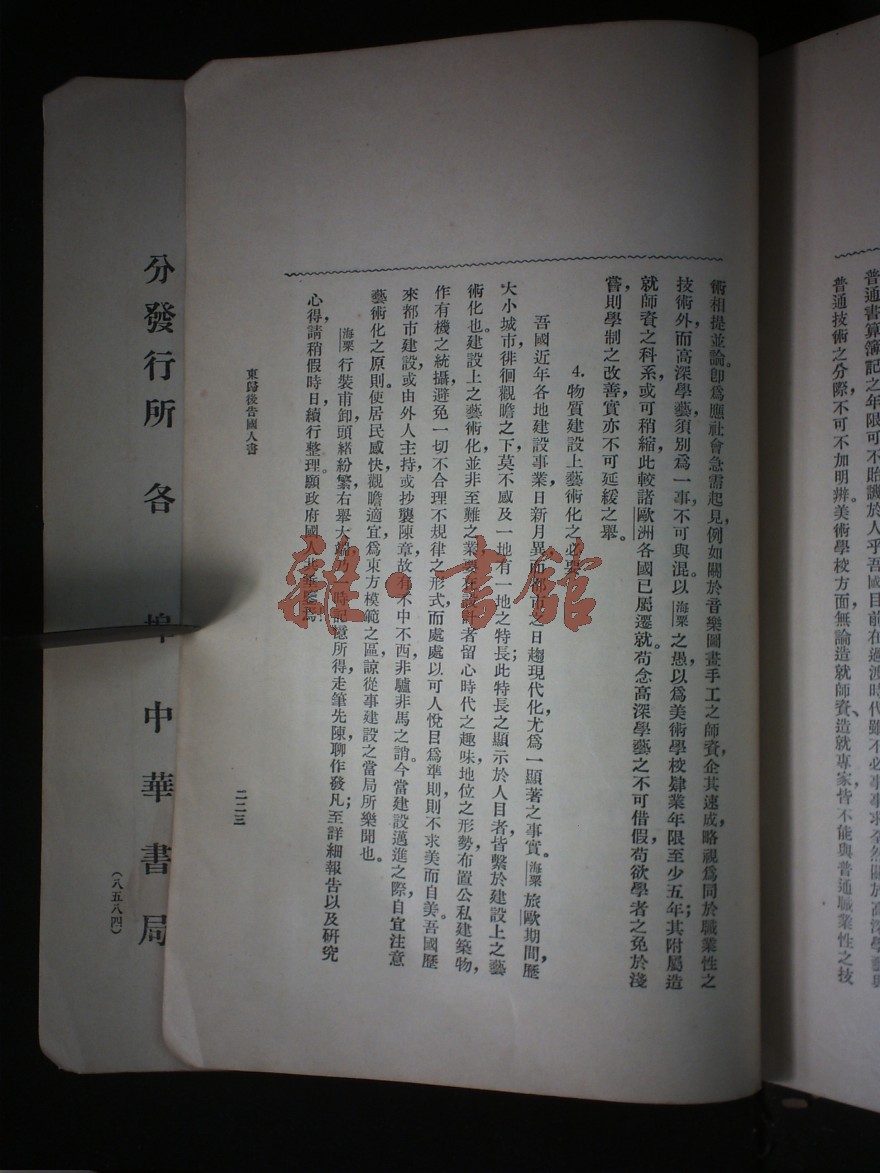 普通書算簿記之年限可不貽譏於人乎吾國目前在過渡時代雖不必事事求全然關於高深學藝與
普通技術之分際不可不加明辨美術學校方面無論造就師資、造就專家皆不能與普通職業性之技
術相提並論。即爲應社會急需起見例如關於音樂圖畫手工之師資企其速成略視爲同於職業性之
技術外而高深學藝須別爲一事不可與混。以海粟之愚以爲美術學校肄業年限至少五年;其附屬造
就師資之科系或可稍縮此較諸歐洲各國已屬遷就。苟念高深學藝之不可借假,苟欲學者之免於淺
嘗,則學制之改善實亦不可延緩之舉。
4. 物質建設上藝術化之必要
吾國近年各地建設事業日新月異而都市之日趨現代化尤爲一顯著之事實。海粟旅歐期間,歷
大小城市徘徊觀瞻之下,莫不感及一地有一地之特長;此特長之顯示於人目者,皆繫於建設上之藝
術化也。建設上之藝術化並非至難之業,要在設計者留心時代之趣味地位之形勢布置公私建築物,
作有機之統攝,避免一切不合理不規律之形式,而處處以可人悅目爲準則則不求美而自美。吾國歷
來都市建設,或由外人主持或抄襲陳章故有不中不西非驢非馬之誚。今當建設邁進之際,自宜注意
藝術化之原則,使居民感快,觀瞻適宜,爲東方模範之區諒從事建設之當局所樂聞也。
海粟行裝甫卸,頭緒紛繁右舉大端,乃一時記憶所得走筆先陳,聊作發凡;至詳細報告以及研究
心得,請稍假時日,續行整理。願政府國人
東歸後告國人書
二二三
分發行所 各埠中華書局
(八五八四)
雜·書館